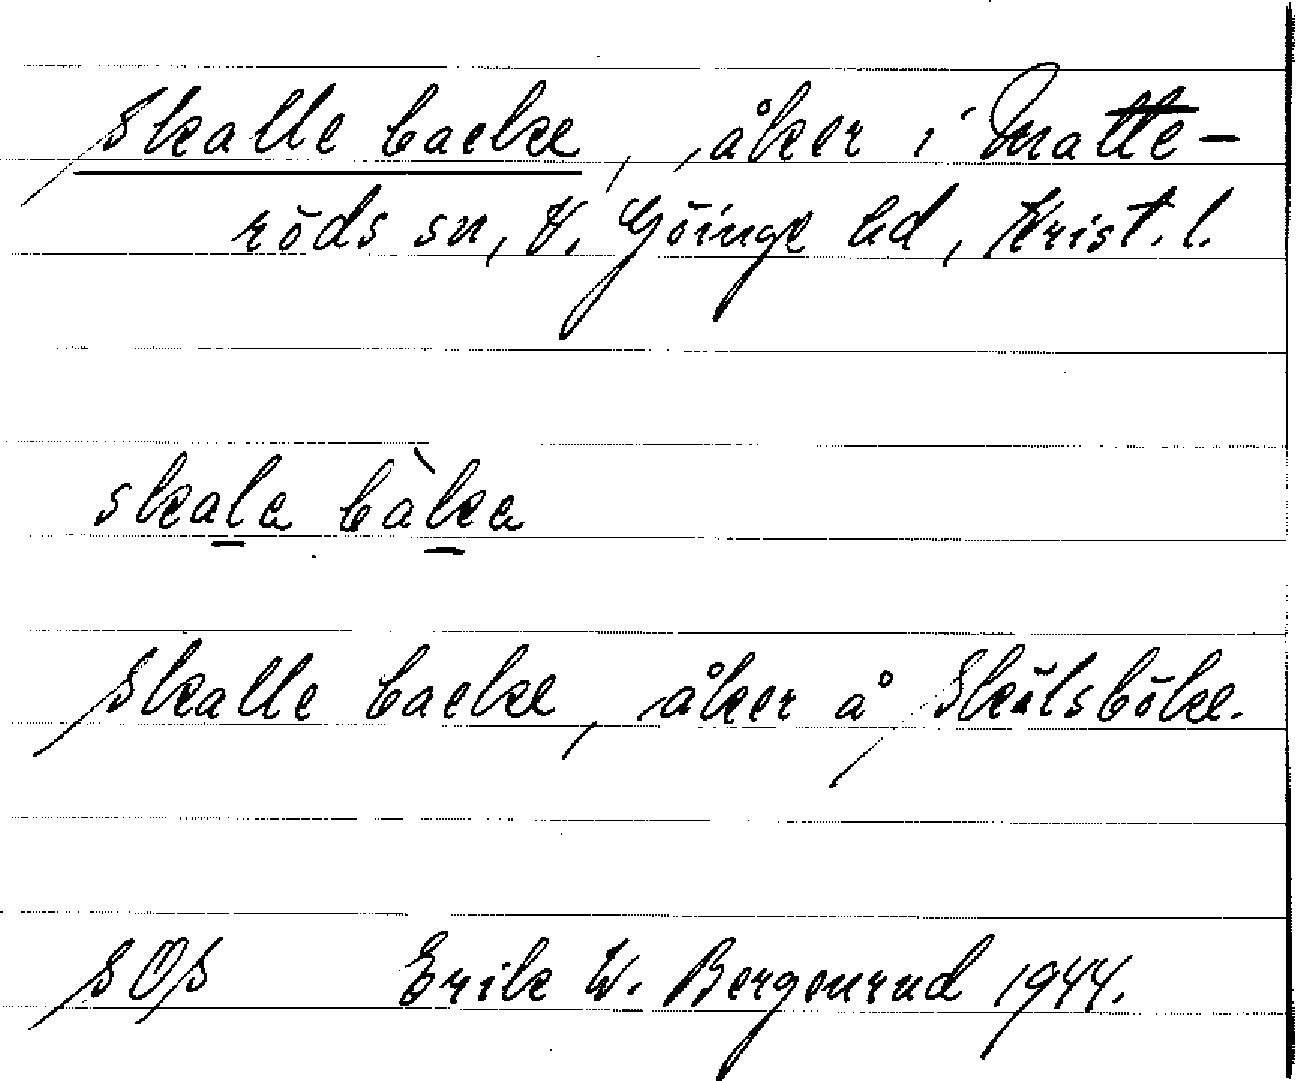 Skalle backe, åker i Matte-
röds sn, V. Göinge hd, Krist. l.
skala bàka
Skalle backe, åker å Skölsböke.
SOS Erik W. Bergenrud 1944.